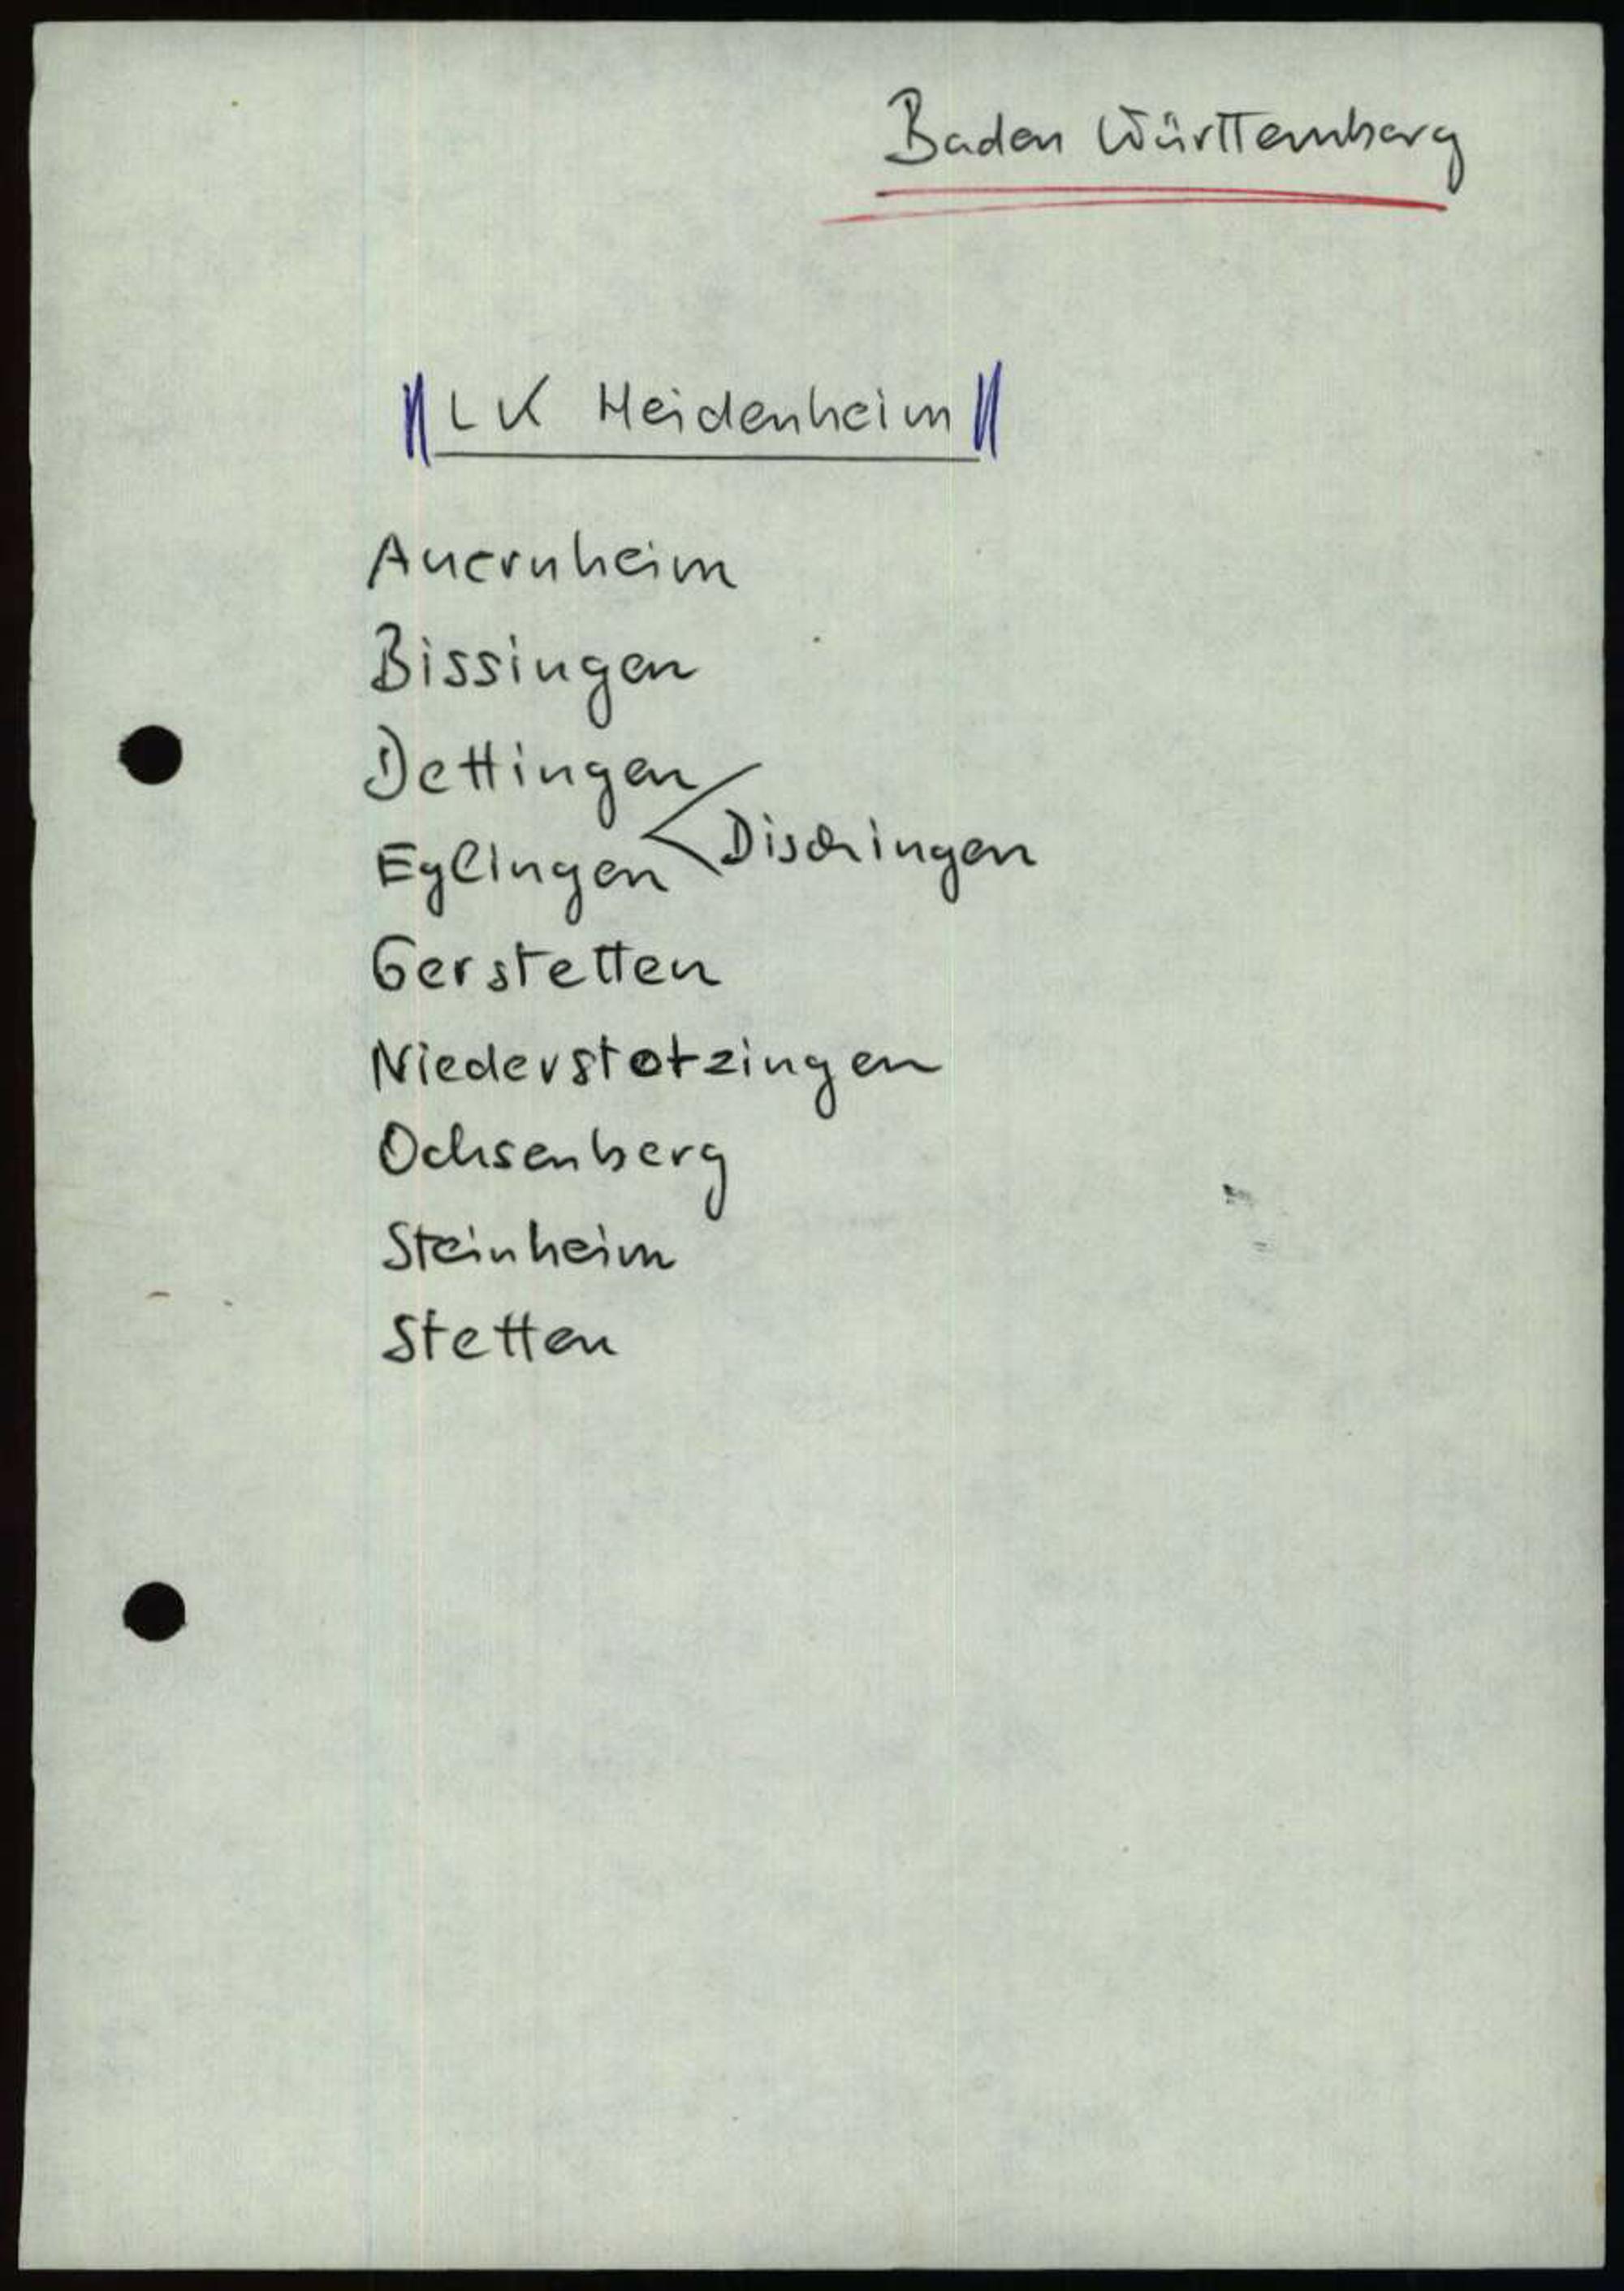 Baden Württemberg
LK Heidenheim
Auernheim
Bissingen
Dettingen
Dischingen
Eglingen
Gerstetten
Niederstotzingen
Ochsenberg
Steinheim
Stetten